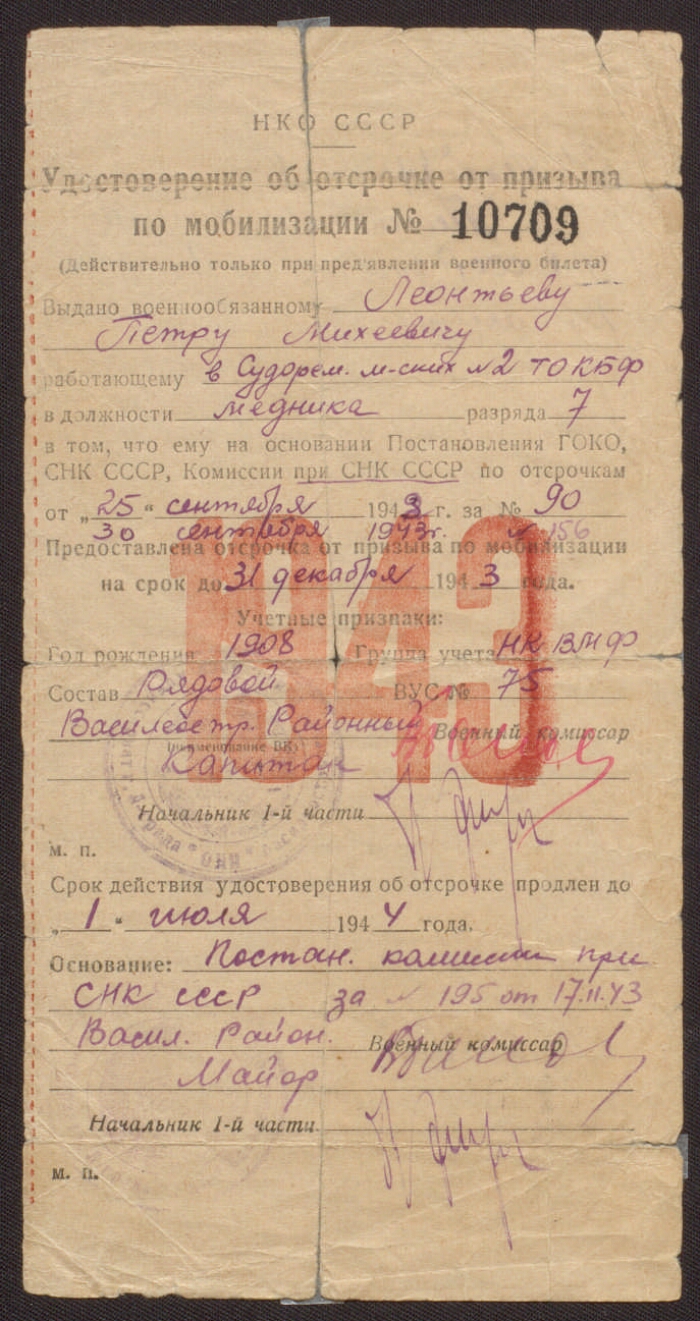 НКО СССР
Удостоверение об отсрочке от призыва
по мобилизации № 10709
(Действительно только при пред'явлении военного билета)
Выдано военнообязанному Леонтьеву
Петру Михеевичу
работающему в Судорем. м-ских №2 ТОКБФ
в должности медника разряда 7
в том, что ему на основании Постановления ГОКО,
СНК СССР, Комиссии при СНК СССР по отсрочкам
от „25" сентября 1943 г. за № 90
30 сентября 1943 г. № 156
Предоставлена отсрочка от призыва по мобилизации
на срок до 31 декабря 1943 года.
1943
Учетные признаки:
Год рождения 1908 Группа учета НК ВМФ
Состав Рядовой ВУС № 75
Василеостр. Районный Военный комиссар
Капитан
Начальник 1-й части
м. п.
Срок действия удостоверения об отсрочке продлен до
„1" июля 1944 года.
Основание: Постан. комиссии при
СНК СССР за № 195 от 17.11.43
Васил. Район. Военный комиссар
Майор
Начальник 1-й части
м. п.